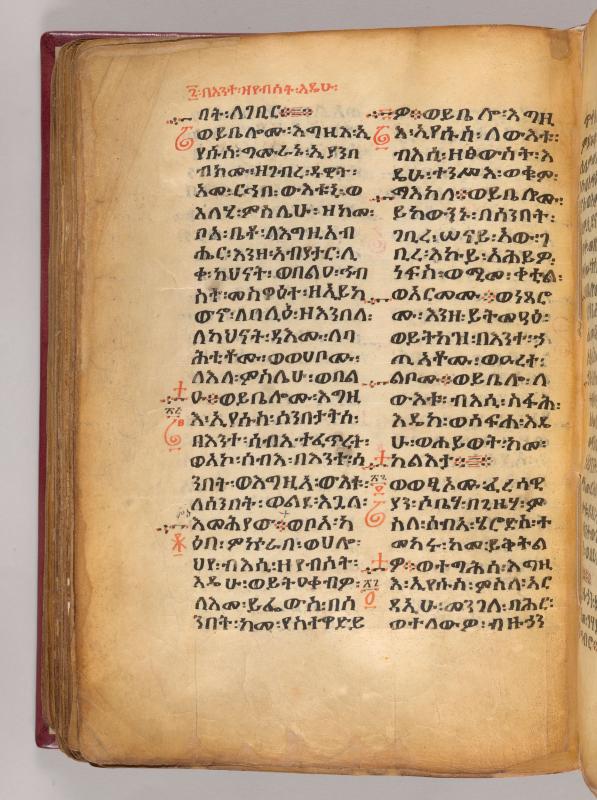 ፯፡በእንተ፡ዘየብሰት፡እዴሁ፡
ባት፡ለገቢር።
ወይቤሎሙ፡እግዚእ፡ኢ
የሱስ፡ግሙራኑ፡ኢያንበ
ብክሙ፡ዘገብረ፡ዳዊት፡
አመ፡ርኅበ፡ውእቱኒ፡ወ
እለሂ፡ምስሌሁ፡ዘከመ፡
ቦአ፡ቤቶ፡ለእግዚአብ
ሔር፡እንዘ፡አብያታር፡ሊ
ቀ፡ካህናት፡ወበልዐ፡ኅብ
ስተ፡መስዋዕት፡ዘኢይከ
ውኖ፡ለበሊዕ፡ዘእንበለ፡
ለካህናት፡ዳእሙ፡ለባ
ሕቲቶሙ፡ወወሀቦሙ፡
ለእለ፡ምስሌሁ፡ወበል
ዑ፡ወይቤሎሙ፡እግዚ
እ፡ኢየሱስ፡ሰንበታትሰ፡
በእንተ፡ሰብእ፡ተፈጥረት፡
ወአኮ፡ሰብእ፡በእንተ፡ሰ
ንበት፡ወእግዚኣ፡ውእቱ፡
ለሰንበት፡ወልደ፡እጓለ፡
እመሕያው።ወቦአ፡ካ
ዕበ፡ምኵራበ፡ወሀሎ፡
ህየ፡ብእሲ፡ዘየብሰት፡
እዴሁ፡ወይትዐቀብዎ፡
ለእመ፡ይፌውስ፡በሰ
ንበት፡ከመ፡ያስተዋድይ
ዎ።ወይቤሎ፡እግዚ
እ፡ኢየሱስ፡ለውእቱ፡
ብእሲ፡ዘፅውስት፡እ
ዴሁ፡ተንሥእ፡ወቁም፡
ማእከለ።ወይቤሎሙ፡
ይከውንኑ፡በሰንበት፡
ገቢረ፡ሠናይ፡አው፡ገ
ቢረ፡እኩይ፡አሕይዎ፡
ነፍስ፡ወሚመ፡ቀቲል፡
ወአርመሙ።ወነጸሮ
ሙ፡እንዘ፡ይትመዓዕ፡
ወይትከዝ፡በእንተ፡ኃ
ጢአቶሙ፡ወዑረተ፡
ልቦሙ።ወይቤሎ፡ለ
ውእቱ፡ብእሲ፡ስፋሕ፡
እዴከ፡ወሰፍሐ፡እዴ
ሁ፡ወሐይወት፡ከመ፡
ካልእታ።
ወወፂኦሙ፡ፈሪሳዊ
ያን፡ሶቤሃ፡በጊዜሃ፡ም
ስለ፡ሰብአ፡ሄሮድስ፡ተ
መከሩ፡ከመ፡ይቅትል
ዎ፡ወተግሕሰ፡እግዚ
እ፡ኢየሱስ፡ምስለ፡አር
ዳኢሁ፡መንገለ፡ባሕር፡
ወተለውዎ፡ብዙኃን